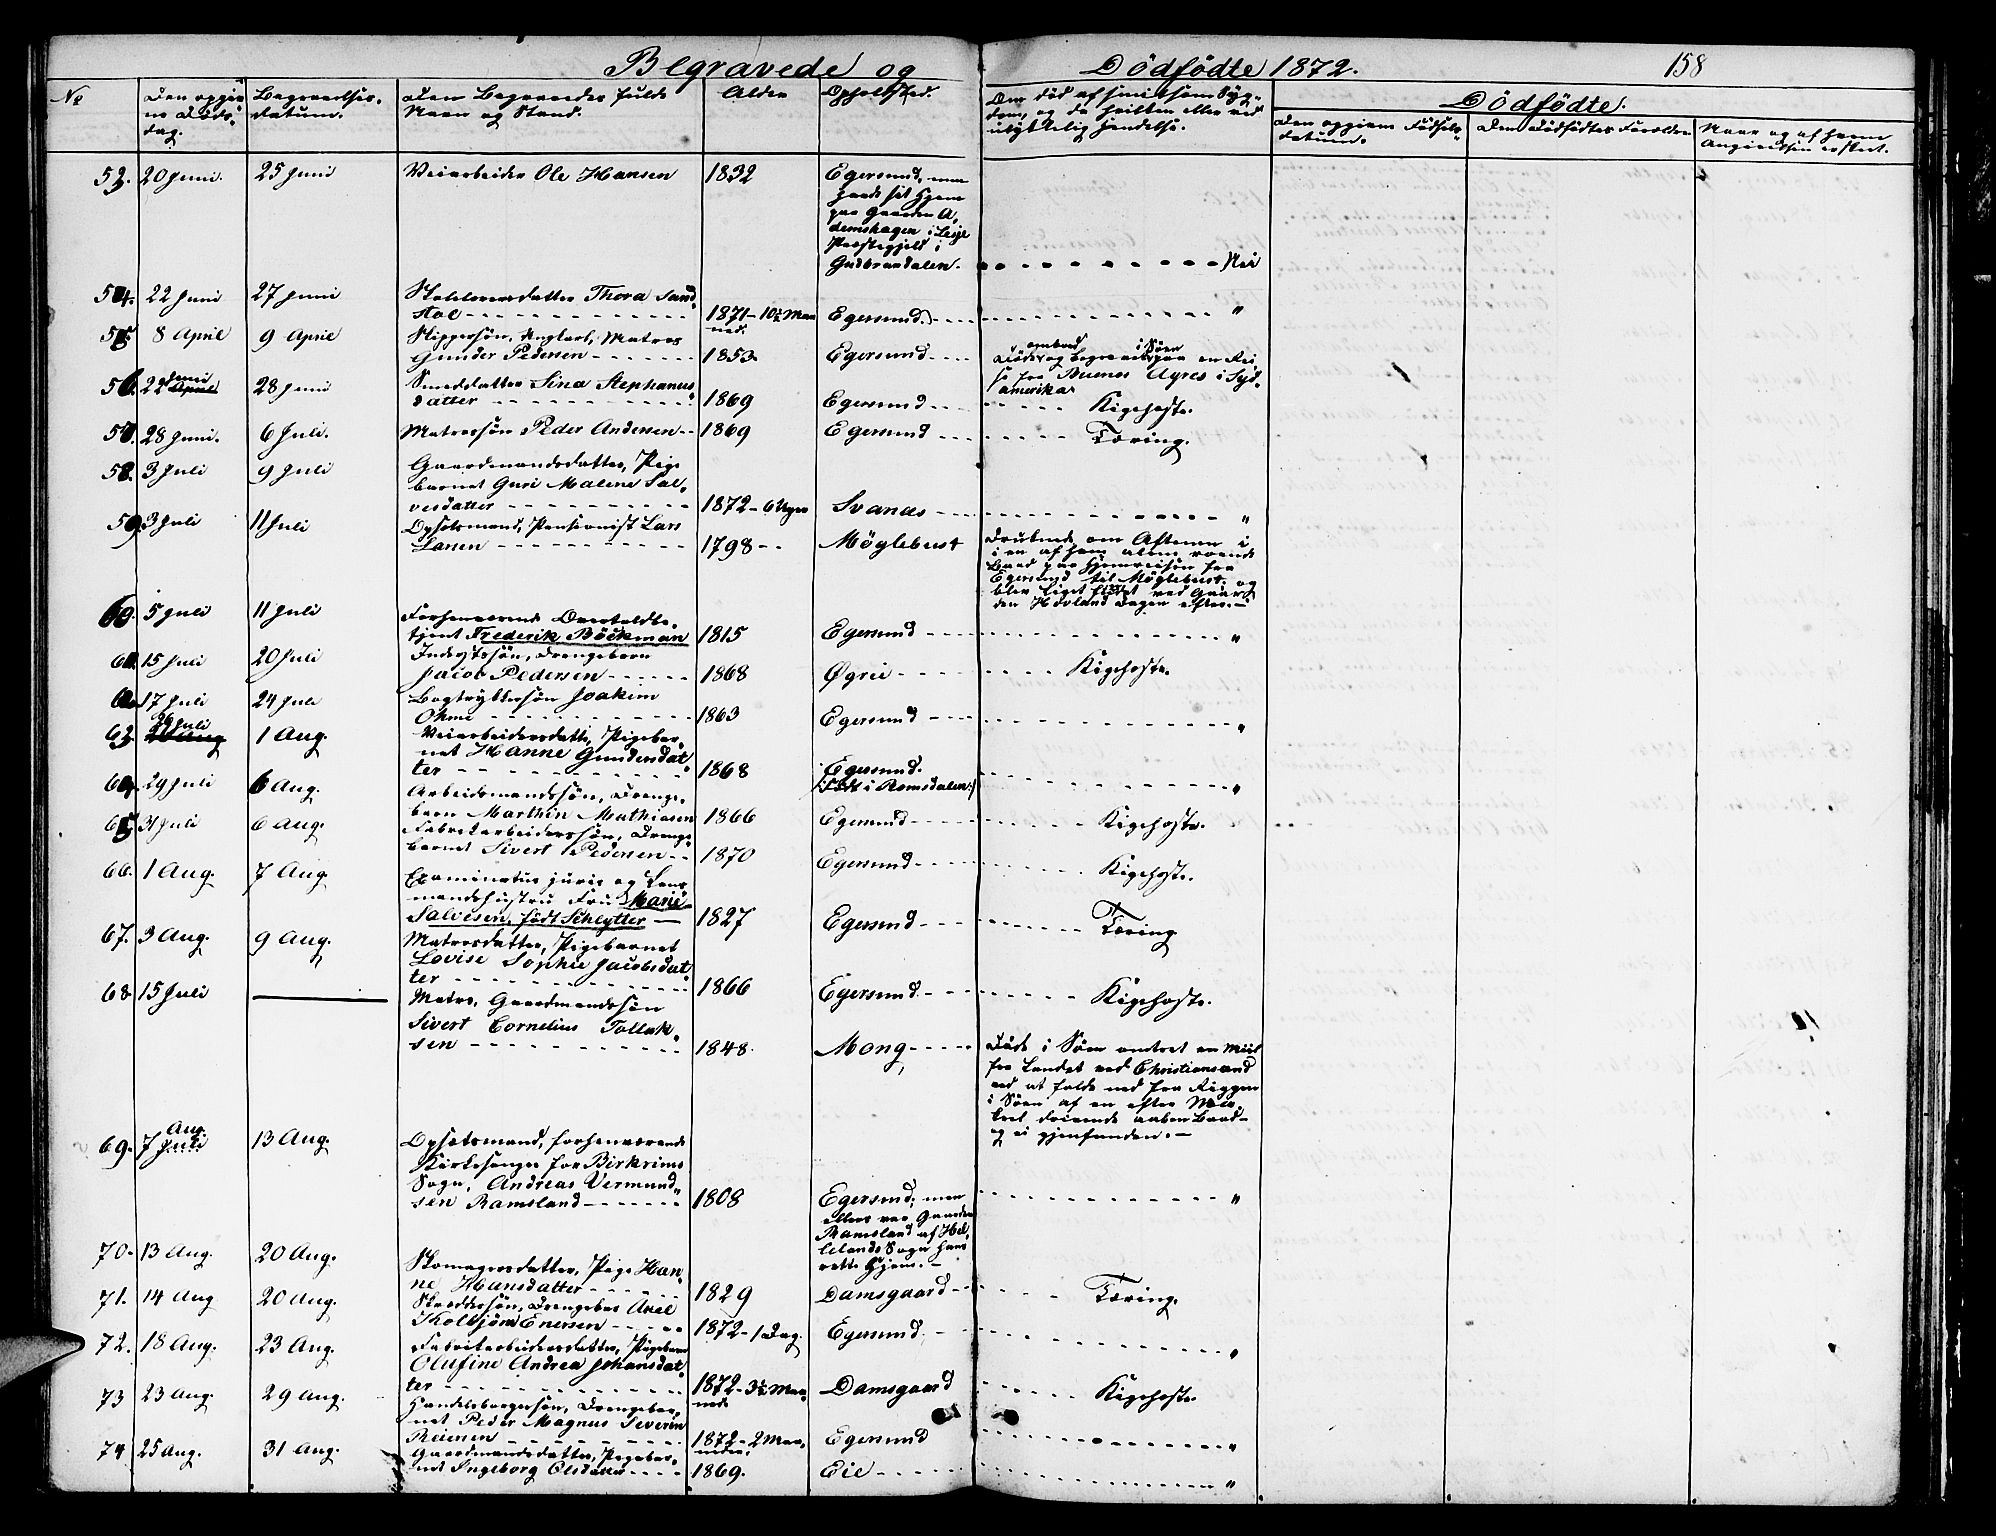 Begravede og Dödfödte 1872. 158
No
Den opgiv-
ne Döds-
dag.
Begravelses-
datum.
Den Begravedes fulde
Navn og Stand.
Alder
Opholdssted.
Om död af smitsom Syg-
dom, og da hvilken eller ved
ulykkelig Hændelse.
Dödfödte.
Den opgivne Födsels-
datum.
Den Dödfödtes Forældre
Naar og af hvem
Anmeldelsen er skeet.
53. 20 Juni. 25 Juni Veiarbeider Ole Hansen 1832 Egersund, men
havde sit Hjem
paa Gaarden
i Lesje
Præstegjeld i
Gudbrandsdalen. Nei
54. 22 Juni 27 Juni Thora Sand-
stöl 1871 - 10½ Maa-
ned. Egersund. "
55. 8 April 9 April Skippersön, Ungkarl, Matros
Gunder Pedersen 1853 Egersund
Döde ombord og begravet i Söen paa en Rei-
se fra Buenos Ayres i Syd-
amerika
56. 22 Juni 28 Juni Smedsdatter Sina Stephanus-
datter 1869 Egersund Kighoste.
57. 28 Juni. 6 Juli. Matrossön Peder Andersen 1869 Egersund Tæring.
58. 3 Juli 9 Juli Gaardmandsdatter, Pige-
barnet Guri Malene Sal-
vesdatter 1872 - 6 Uger Svanæs "
59. 3 Juli 11 Juli Opsidsmand, Pensionist Lars
Larsen 1798 Möglebust
Druknede om Aftenen i
en af ham alene roende
Baad paa Hjemreisen fra
Egersund til Möglebust og
blev Liget fundet ved Gaar-
den Hovland Dagen efter.
60. 5 Juli 11 Juli Forhenværende Overtold-
betjent Frederik Böckman 1815 Egersund "
61. 15 Juli 20 Juli Inderstsön, Drengebarn
Jacob Pedersen 1868 Øgrei Kighoste.
62. 17 Juli 24 Juli Bogtrykkersön Joakim
Ohme 1863 Egersund "
63. 26 Juli 1 Aug. Veiarbeidersdatter, Pigebar-
net Hanne Gundersdat-
ter 1868 Egersund.
(Födt i Romsdalen.) "
64. 29 Juli 6 Aug. Arbeidsmandssön, Drenge-
barn Marthin Mathiasen 1866 Egersund Kighoste.
65. 31 Juli 6 Aug. Fabrikarbeiderssön, Drenge-
barnet Sivert Pedersen 1870 Egersund Kighoste.
66. 1 Aug. 7 Aug. Examinatus juris og Lens-
mandshustru Fru Marie
Salvesen, födt Schlytter 1827 Egersund Tæring
67. 3 Aug. 9 Aug. Matrosdatter, Pigebarnet
Lovise Sophie Jacobsdat-
ter 1866 Egersund Kighoste.
68 15 Juli Matros, Gaardmandssön
Sivert Cornelius Tollak-
sen 1848 Mong
Döde i Söen omtrent en Miil
fra Landet ved Christianssand
ved at falde ned fra Riggen
i Söen af en efter
drivende aaben Baad
og ei gjenfunden.
69. 7 Aug. 13 Aug. Opsidsmand, forhenværende
Kirkesanger for Birkrims
Sogn, Andreas Vermund-
sen Ramsland 1808 Egersund, men
ellers var Gaarden
Ramsland af Hel-
lelands Sogn hans
rette Hjem. "
70. 13 Aug. 20 Aug. Skomagersdatter, Pige Han-
ne Hansdatter 1829 Damsgaard Tæring.
71. 14 Aug 20 Aug. Skræddersön, Drengebar Axel
Kolbjörn Enersen 1872 - 1 Dag. Egersund. "
72. 18 Aug. 23 Aug. Fabrikarbeidersdatter, Pigebarn
Olufine Andrea Johansdat-
ter 1872 - 3½ Maa-
ned Damsgaard Kighoste.
73 23 Aug. 29 Aug. Handelsborgersön, Drengebar-
net Peder Magnus Severin
Reiersen 1872 - 2 Maa-
neder. Egersund "
74 25 Aug. 31 Aug. Gaardmandsdatter, Pigebar-
net Ingeborg Olsdatter 1869. Eie "